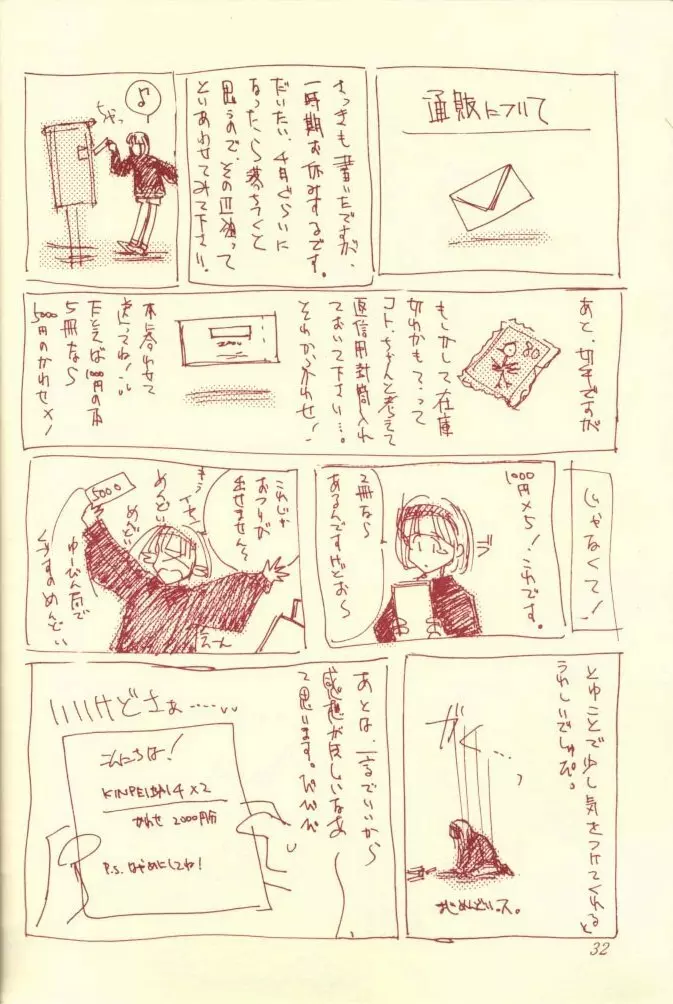 通販について
さっきも書いたですが、
一時期お休みするです。
だいたい、4月ぐらいに
なったら落ちつくと
思うので、その辺狙って
といあわせてみて下さい。
ちゃっ
♪
あと、切手ですが
80
もしかして在庫
切れかもって
コト、ちゃんと考えて
返信用封筒入れ
ておいて下さい…。
それか、かわせ!
本に合わせて
送ってね!
たとえば1000円の本
5冊なら
5000円のかわせ×!
じゃなくて!
1000円×5!これです。
2冊なら
あるんですけどお~
これじゃ
おつりが
出せません~
もう一セン
めんどい
めんどい
5000
ゆーびん局で
くずすのめんどい
え~ん
とゆことで少し気をつけてくれると
うれしいでしゅぴ。
がく…
あとは、一言でいいから
感想が欲しいなあ
て思います。ぴぴぴ
いいけどさぁ……
こんにちは!
4×2
かわせ 2000円分
P.S. はやめにしてね!
32